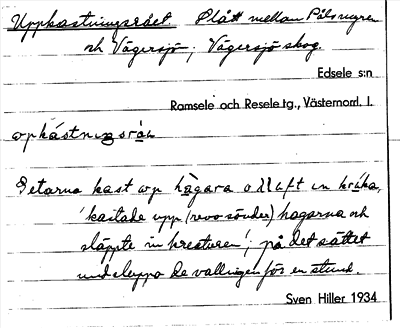 Uppkastningsrået. Slått mellan Pålsmyren
och Vägersjö; Vägersjö skog.
Edsele s:n
Ramsele och Resele tg., Västernorrl. l.
Getarna kast up hägara o
'kastade upp (revo sönder) hagarna och
släppte in kreaturen'; på det sättet
undslapp de vallningen för en stund.
Sven Hiller 1934